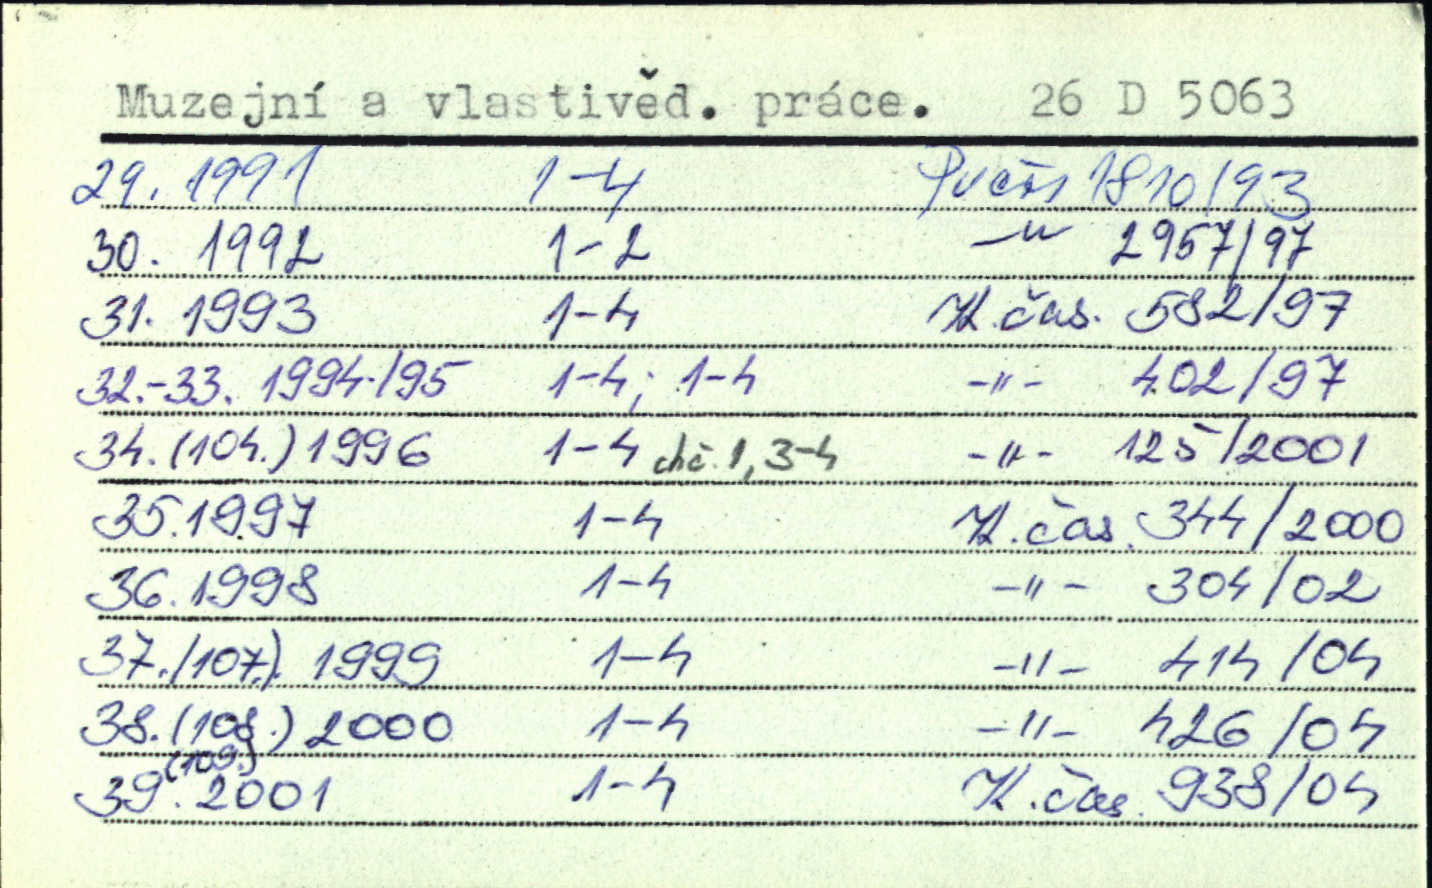 Muzejní a vlastivěd. práce. 26 D 5063
29. 1991 1-4 1810/93
30. 1992 1-2 -"- 2957/97
31. 1993 1-4 K. čas. 582/97
32.-33. 1994/95 1-4; 1-4 -"- 402/97
34. (104.) 1996 1-4 chč. 1, 3-4 -"- 125/2001
35. 1997 1-4 K. čas. 344/2000
36. 1998 1-4 -"- 304/02
37. (107.). 1999 1-4 -"- 414/04
38. (108.) 2000 1-4 -"- 426/04
39. (109.) 2001 1-4 K. čas. 938/04